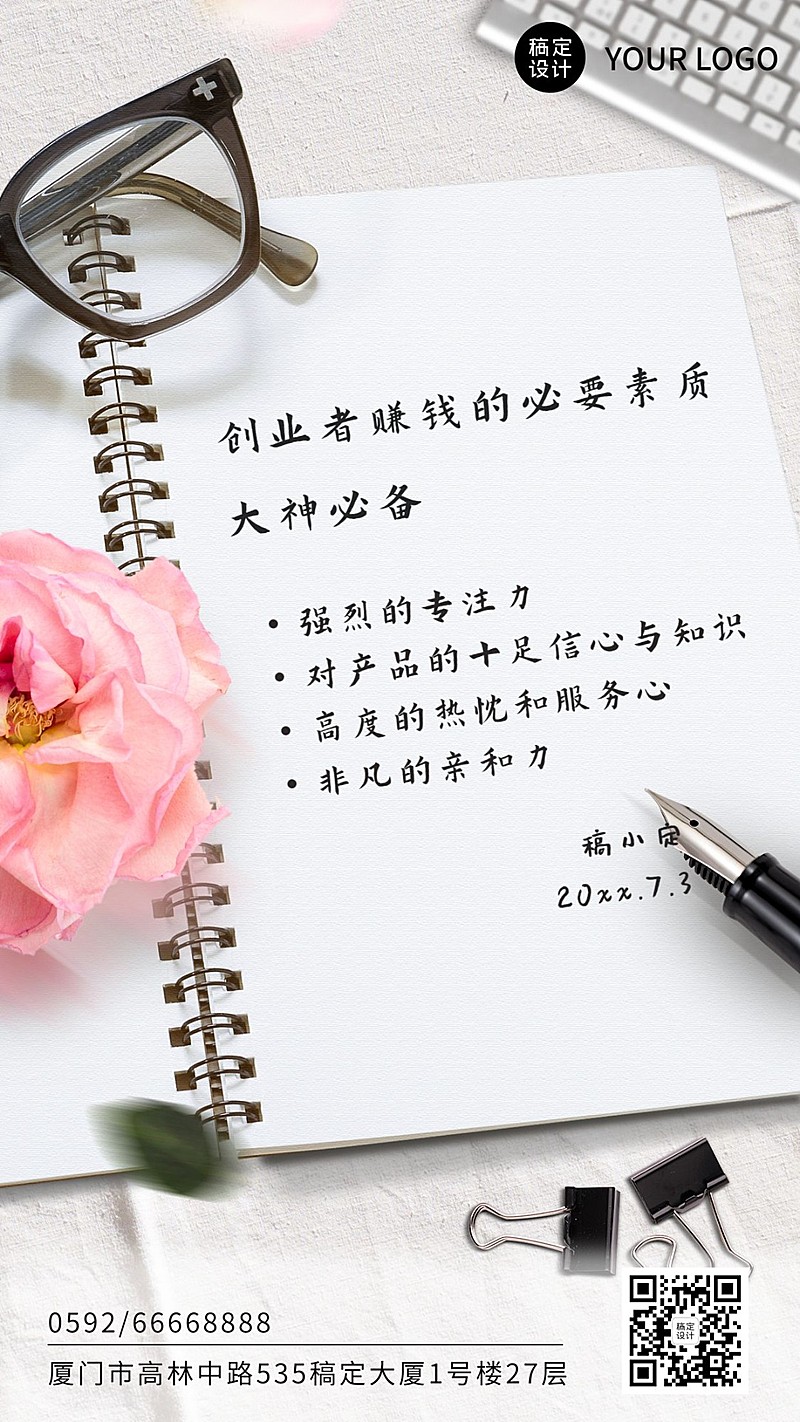 稿定
设计
YOUR LOGO
创业者赚钱的必要素质
大神必备
• 强烈的专注力
• 对产品的十足信心与知识
• 高度的热忱和服务心
• 非凡的亲和力
稿小定
20xx.7.3
0592/66668888
厦门市高林中路535稿定大厦1号楼27层
稿定
设计